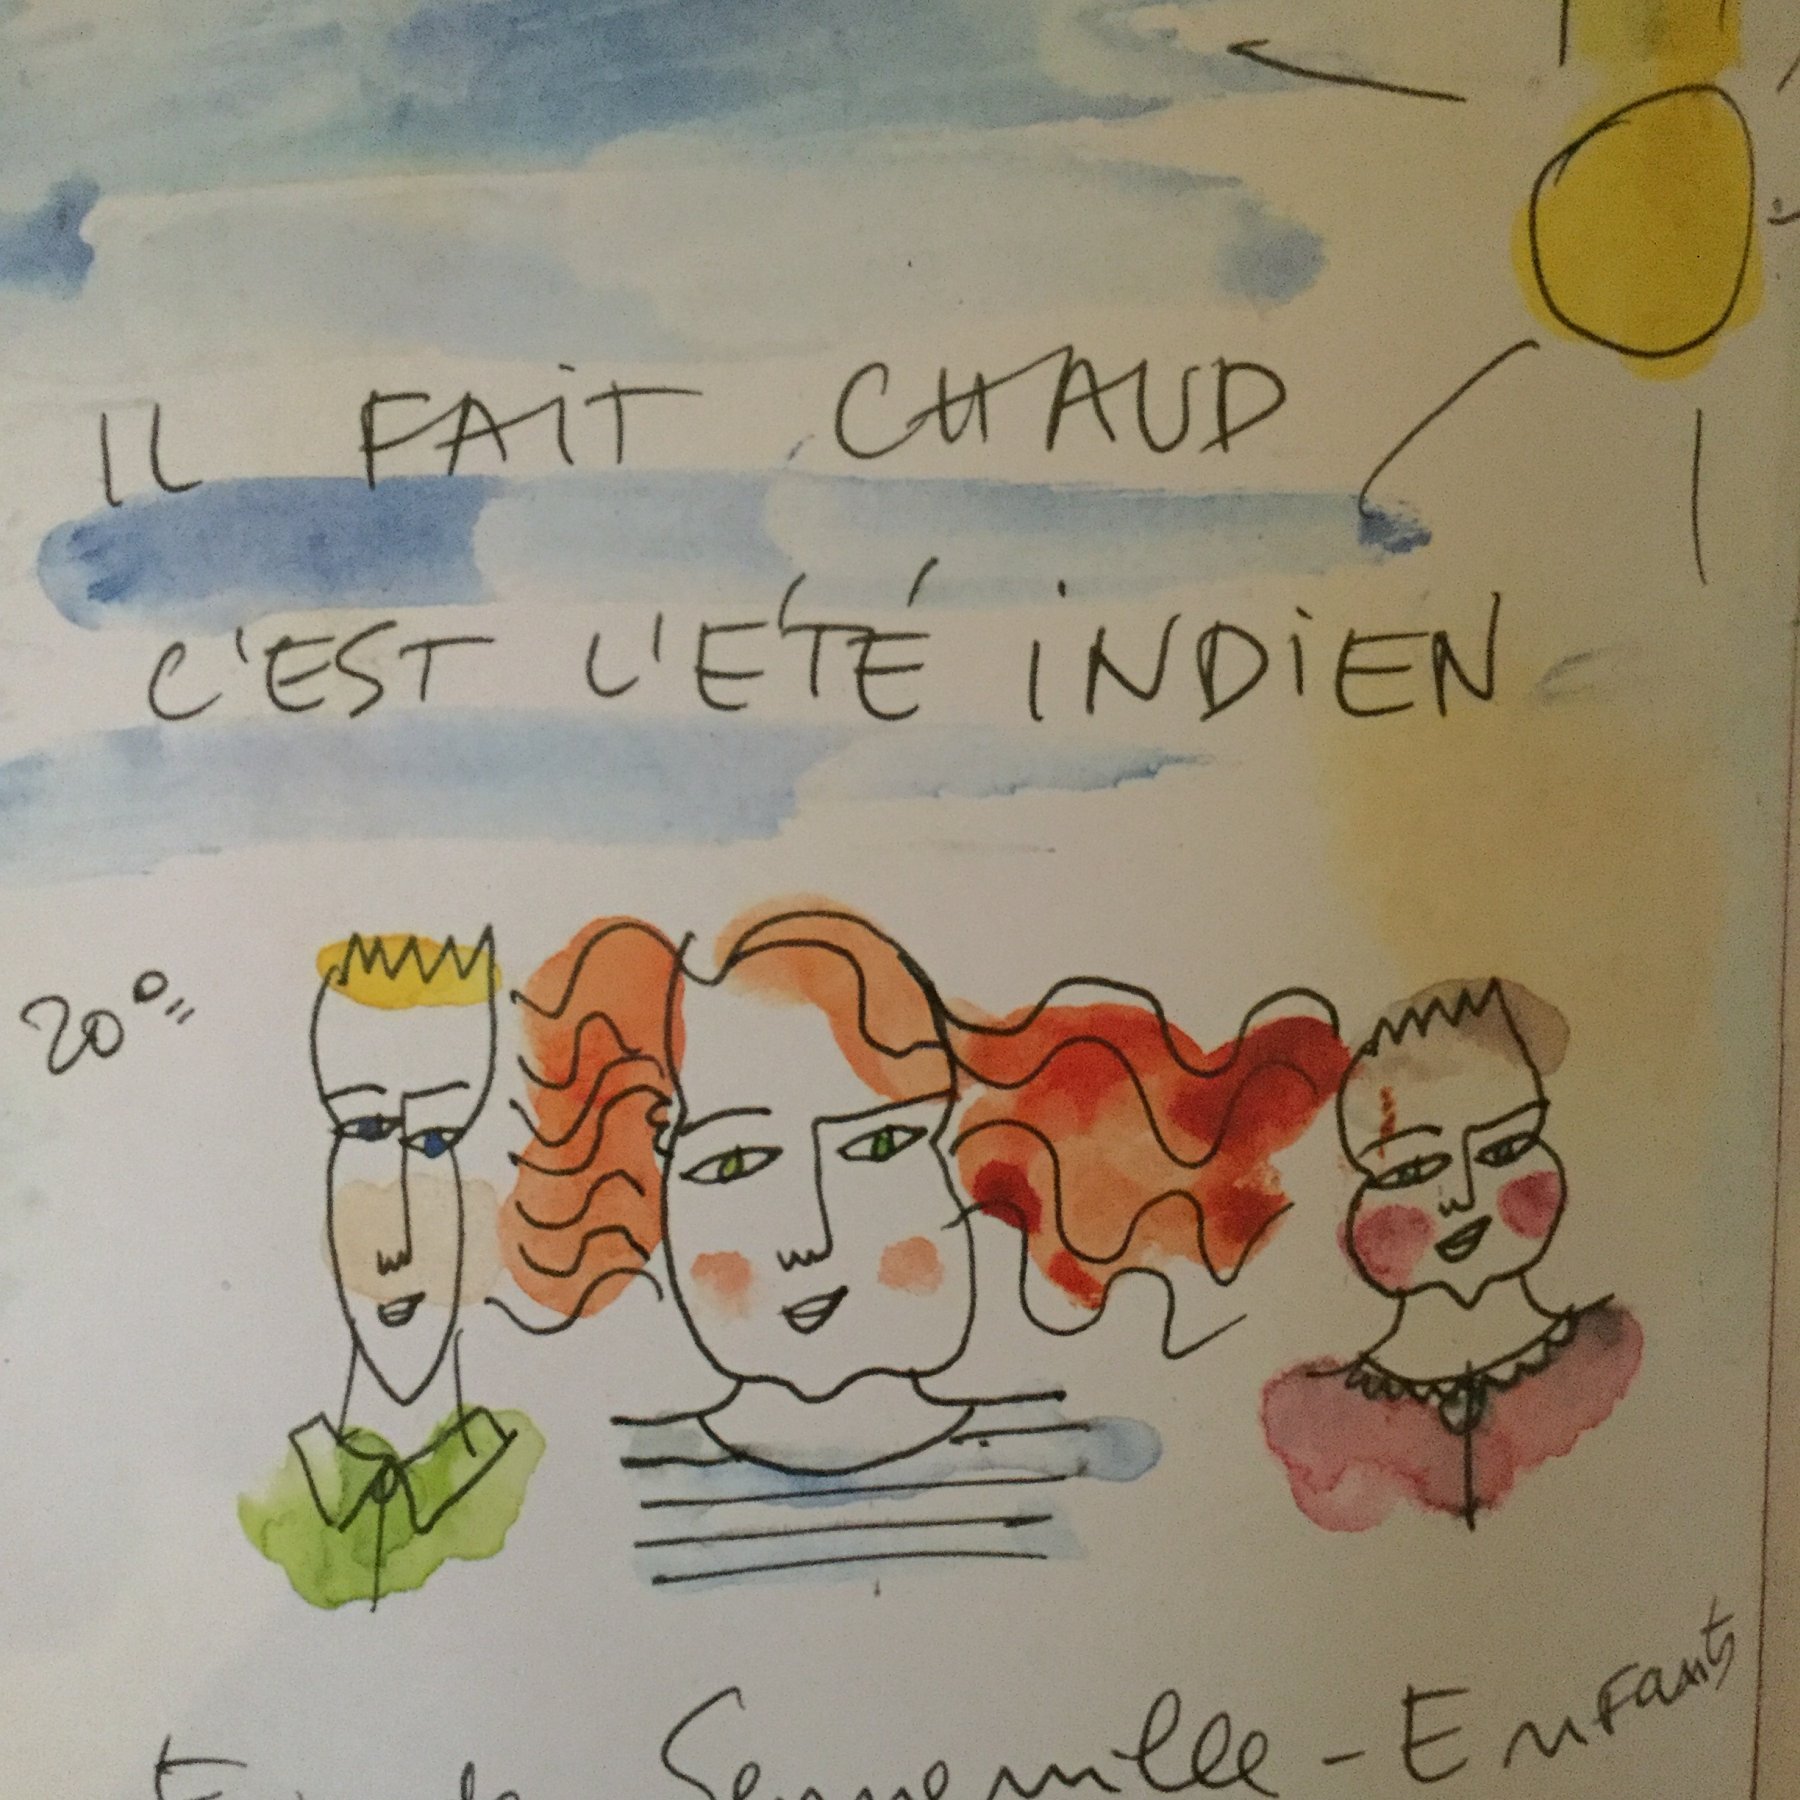 IL FAIT CHAUD
C'EST L'ÉTÉ INDIEN
20°
Senneville - Enfants